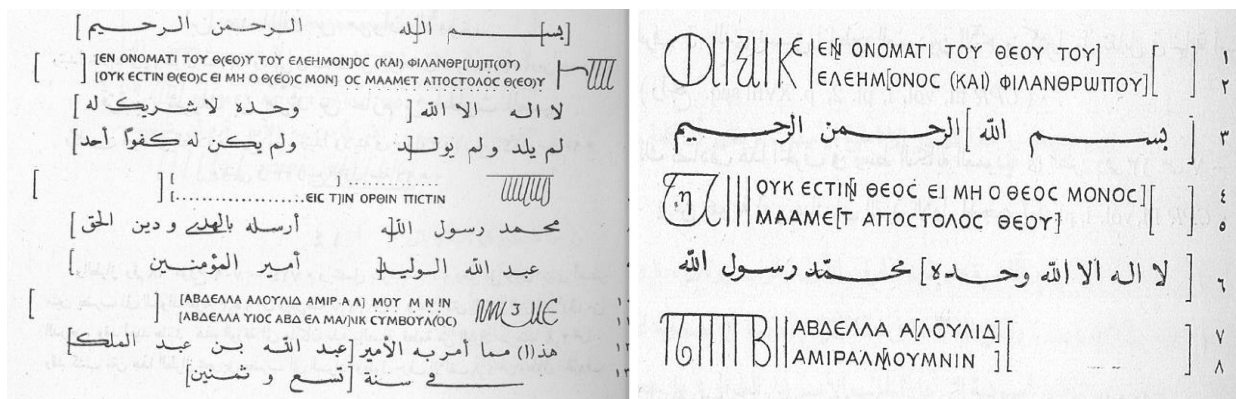 [بســـم الله] الرحمن الرحيم]
[ΕΝ ΟΝΟΜΑΤΙ ΤΟΥ Θ(ΕΟ)Υ ΤΟΥ ΕΛΕΗΜΟΝ]ΟC (ΚΑΙ) ΦΙΛΑΝΘΡ[Ω]Π(ΟΥ)
[ΟΥΚ ΕCΤΙΝ Θ(ΕΟ)C ΕΙ ΜΗ Ο Θ(ΕΟ)C ΜΟΝ] ΟC ΜΑΑΜΕΤ ΑΠΟCΤΟΛΟC Θ(ΕΟ)Υ
لا اله الا الله [وحده لا شريك له]
لم يلد ولم يولـ[ـد ولم يكن له كفوًا أحد]
[....................] ............
[....................ΕΙC Τ]ΙΝ ΟΡΘΙΝ ΠΙCΤΙΝ
محمد رسول اللـ[ـه أرسله بالهدى و دين الحق]
عبد الله الوليد[ أمير المؤمنين ]
[ΑΒΔΕΛΛΑ ΑΛΟΥΛΙΔ ΑΜΙΡ Α Λ] ΜΟΥ Μ Ν ΙΝ
[ΑΒΔΕΛΛΑ ΥΙΟC ΑΒΔ ΕΛ ΜΑ/]ΝΙΚ CΥΜΒΟΥΛ(ΟC)
هذ(ا) مما أمر به الأمير [عبد الله بن عبد الملك]
فى سنة [تسع و ثمنين]
[ΕΝ ΟΝΟΜΑΤΙ ΤΟΥ ΘΕΟΥ ΤΟΥ] [ ] ١
ΕΛΕΗΜ[ΟΝΟC (ΚΑΙ) ΦΙΛΑΝΘΡωΠΟΥ] [ ] ٢
بســـم الله [الرحمن الرحيم] ٣
ΟΥΚ ΕCΤΙ[Ν ΘΕΟC ΕΙ ΜΗ Ο ΘΕΟC ΜΟΝΟC] [ ] ٤
ΜΑΑΜΕ[Τ ΑΠΟCΤΟΛΟC ΘΕΟΥ] [ ] ٥
لا اله الا الله وحده] محمّد رسول الله ] ٦
ΑΒΔΕΛΛΑ Α[ΛΟΥΛΙΔ] [ ] ٧
ΑΜΙΡΑΛΜ[ΟΥΜΝΙΝ ] [ ] ٨